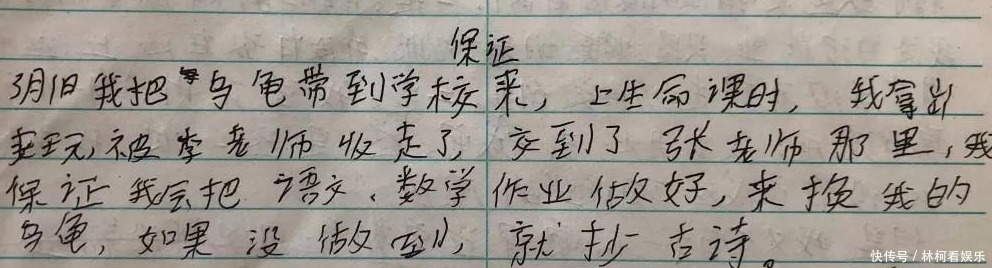 保证
3月1日我把乌龟带到学校来，上生命课时，我拿出
来玩，被李老师收走了，交到了张老师那里，我
保证我会把语文、数学作业做好，来换我的
乌龟，如果没做到，就抄古诗。
快传号/林柯看娱乐